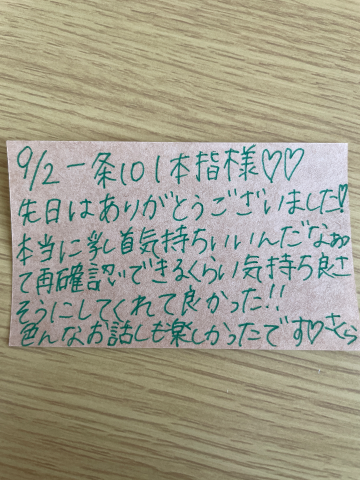 9/2 一条101本指様♡♡
先日はありがとうございました♡
本当に乳首気持ちいいんだなぁ
て再確認できるくらい気持ち良さ
そうにしてくれて良かった!!
色んなお話しも楽しかったです♡さくら